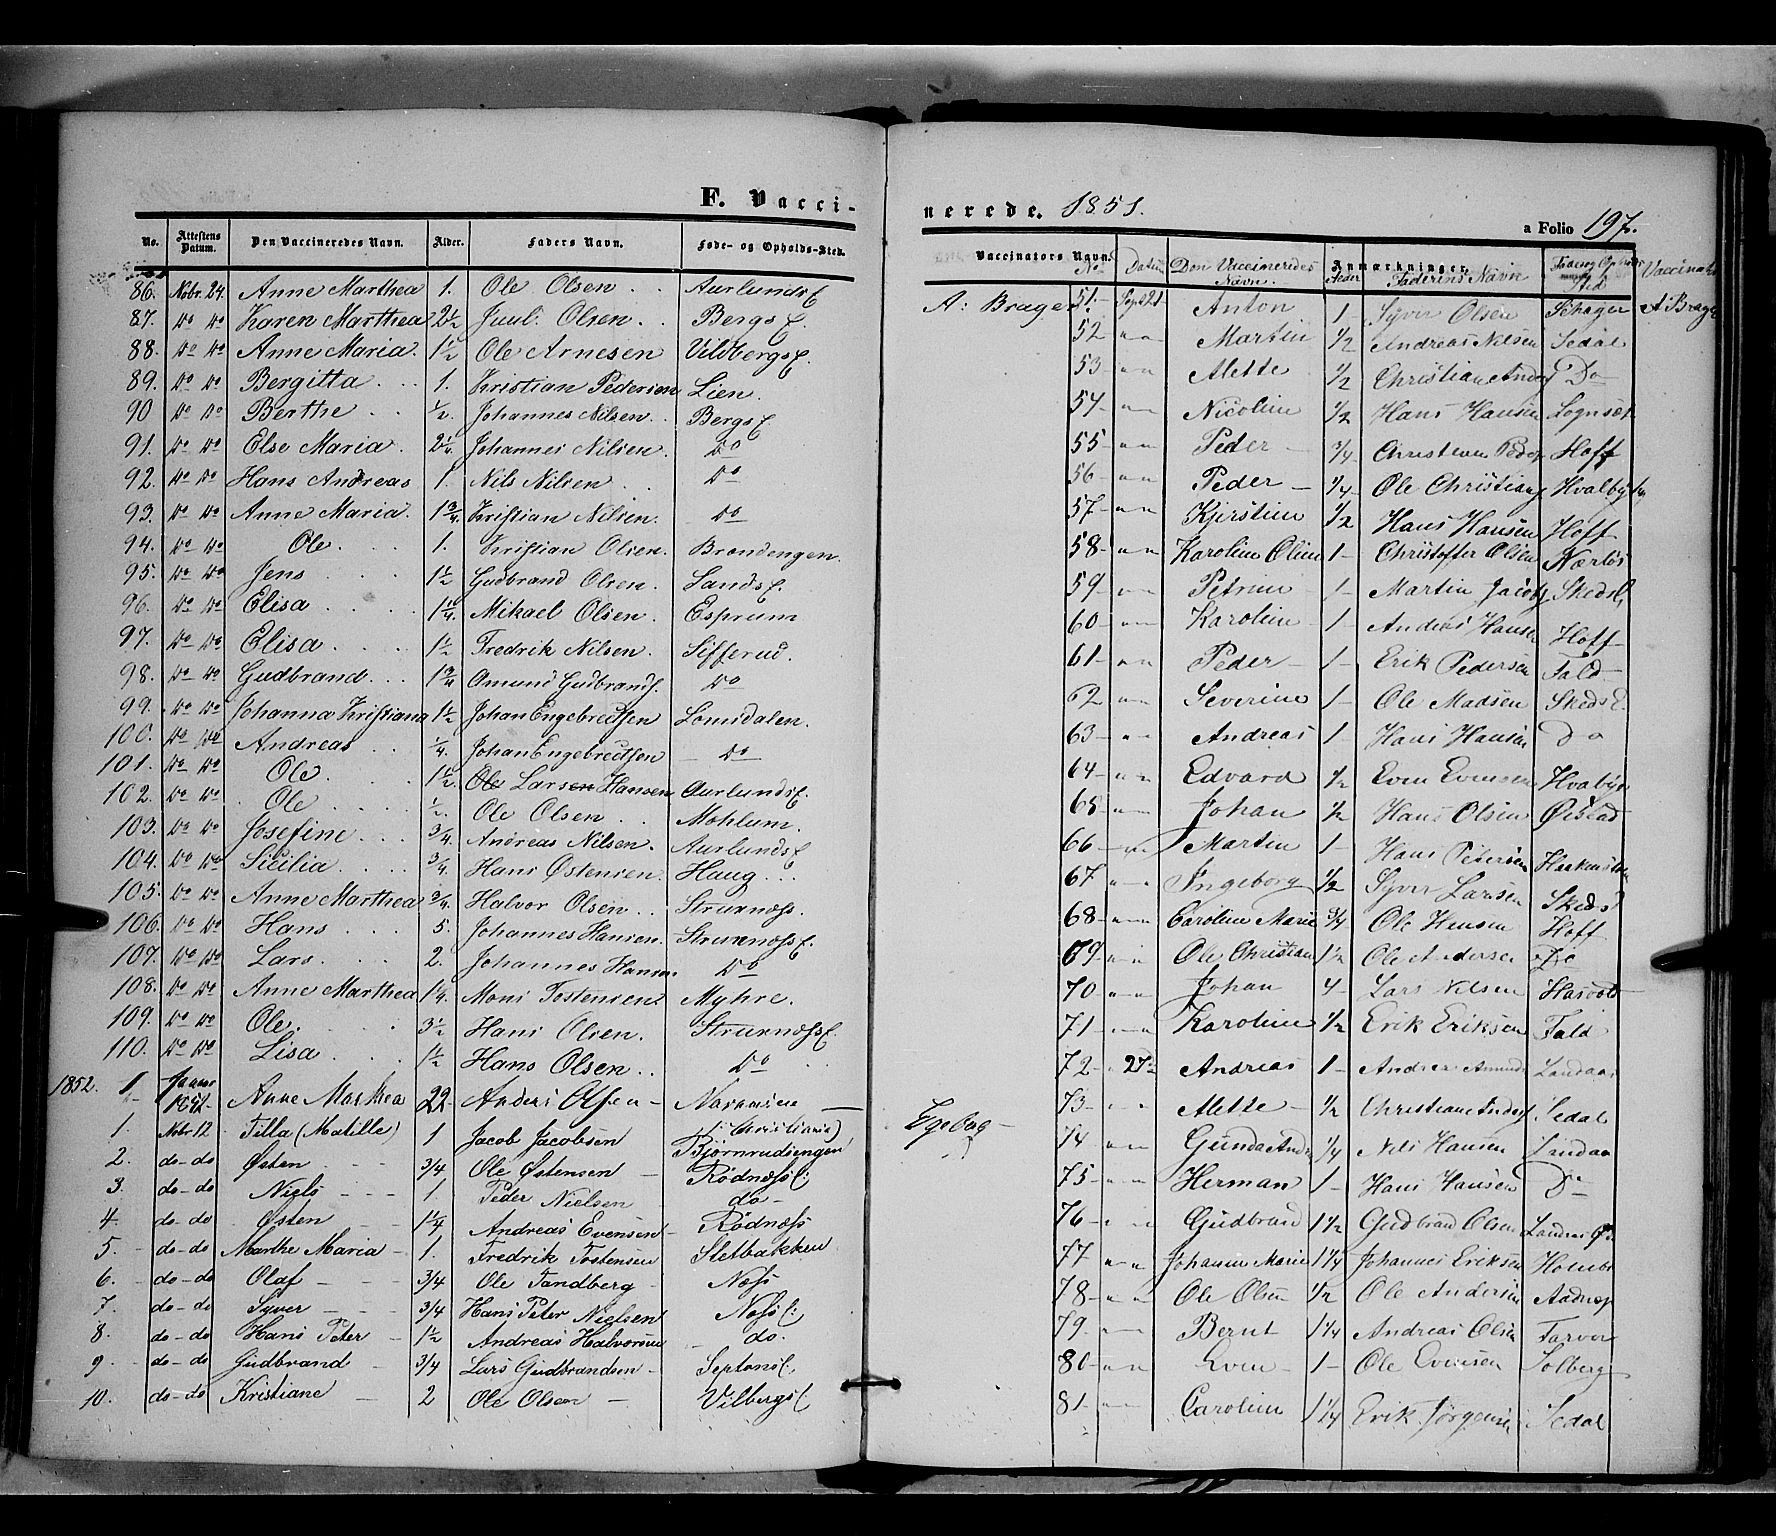 F. Vacci-
No. Attestens Datum. Den Vaccineredes Navn. Alder. Faders Navn. Føde- og Opholds-Sted.
86. Nobr. 24. Anne Marthea 1. Ole Olsen Aurlunds E
87. do do Karen Marthea 2½ Juul Olsen Bergs E.
88. do do Anne Maria. 1½ Ole Arnesen Vildbergs E.
89. do do Bergitta 1. Kristian Pedersen Lien.
90 do do Berthe ½. Johannes Nilsen. Bergs E
91. do do Else Maria. 2¼. Johannes Nilsen. do
92. do do Hans Andreas 1. Nils Nilsen do
93. do do Anne Maria. 1¾. Kristian Nilsen. do
94. do do Ole. 1. Kristian Olsen. Brondengen
95. do do Jens 1½ Gudbrand Olsen. Lands E.
96. do do Elisa 1¼. Mikael Olsen. Esprum
97. do do Elisa 1½ Fredrik Nilsen. Sifferud.
98. do do Gudbrand. 1¾ Omund Gudbrands. do
99. do do Johanna Kristiana 1½ Johan Engebretsen Lomsdalen.
100. do do Andreas ¼. Johan Engebretsen do
101. do do Ole. 1½. Ole Larsen Hansen Aurlunds E.
102. do do Ole ½. Ole Olsen Mohlum.
103. do do Josefine ¾. Andreas Nilsen. Aurlunds E
104. do do Sicilia ¾. Hans Østensen. Haug
105. do do Anne Marthea ¾. Halvor Olsen Struxnæss.
106. do do Hans 5. Johannes Hansen. Struxnæss E.
107. do do Lars 2. Johannes Hansen do
108. do do Anne Marthea 1¼. Mons Tostensens Myhre.
109. do do Ole. 3½ Hans Olsen. Struxnæss E.
110. do do Lisa 1½ Hans Olsen do
1852. 1 Januar 1852. Anne Marthea 22 Anders Olsen
1. Nobr 12 Tilla (Matille) 1 Jacob Jacobsen (Christiania) Bjørnrudsengen
2. do-do Østen ¾ Ole Østensen Rødnæss E.
3. do-do Niels 1. Peder Nielsen do
4. do-do Østen 1¼ Andreas Evensen Rødnæss
5. do-do Marthe Maria 1. Fredrik Tostensen Sletbakken
6. do-do Olaf ¾ Ole Tandberg Næss
7. do-do Syver ¾ Hans Peter Nielsen Næss E.
8. do-do Hans Peter 1½ Andreas Halvorsen do.
9 do-do Gudbrand ¾ Lars Gudbrandsen Septons E.
10. do-do Kristiane 2 Ole Olsen Vilbergs E
nerede. 1851.
a Folio 197.
Vaccinators Navn. Anmærkninger.
No. Datum Den Vaccineredes Navn. Alder Faderens Navn Sted Vaccinator
A: Brager 51. Sept 21 Anton 1 Syver Olsen Schager A Brager
52 Martin ½ Andreas Nilsen Sedal
53 Alette ½ Christian Anders Do
54 Nicoline ½ Hans Hansen Lognsæt
55 Peder ¾ Christian Peders Hoff
56 Peder ¼ Ole Christians
57 Kjerstine ½ Hans Hansen Hoff
58 Karoline Oline 1 Christoffer Olsen Nærløs
59 Petrine 1 Martin Jacobs
60 Karoline 1 Anders Hansen Hoff
61 Peder 1 Erik Pedersen Fald
62 Severine 1 Ole Madsen Skeds E.
63 Andreas 1 Hans Hansen Do
64 Edvard ½ Even Evensen Hvalbye
65 Johan ½ Hans Olsen Ørstad
66 Martin 1 Hans Petersen
67 Ingeborg ½ Syver Larsen Skeds
68 Caroline Marie ¾ Ole Hansen Hoff
69 Ole Christian 1½ Ole Andersen Do
70 Johan 4 Lars Nilsen
71 Karoline ½ Erik Eriksen Fald
72 27 Andreas 1 Landaas
73 Alette ½ Christian Anders Sedal
Egeberg 74 Gunda Andr ¼ Nils Hansen Landaa
75 Herman 1 Hans Hansen Do
76 Gudbrand 1½ Gudbrand Olsen
77 Johanne Marie 1¼ Johannes Eriksen
78 Ole Olsen ½ Ole Andersen Aadnæs
79 Bernt 1¼ Andreas Olsen Farver
80 Even 1 Ole Evensen Solberg
81 Caroline 1¼ Erik Jørgensen Sedal